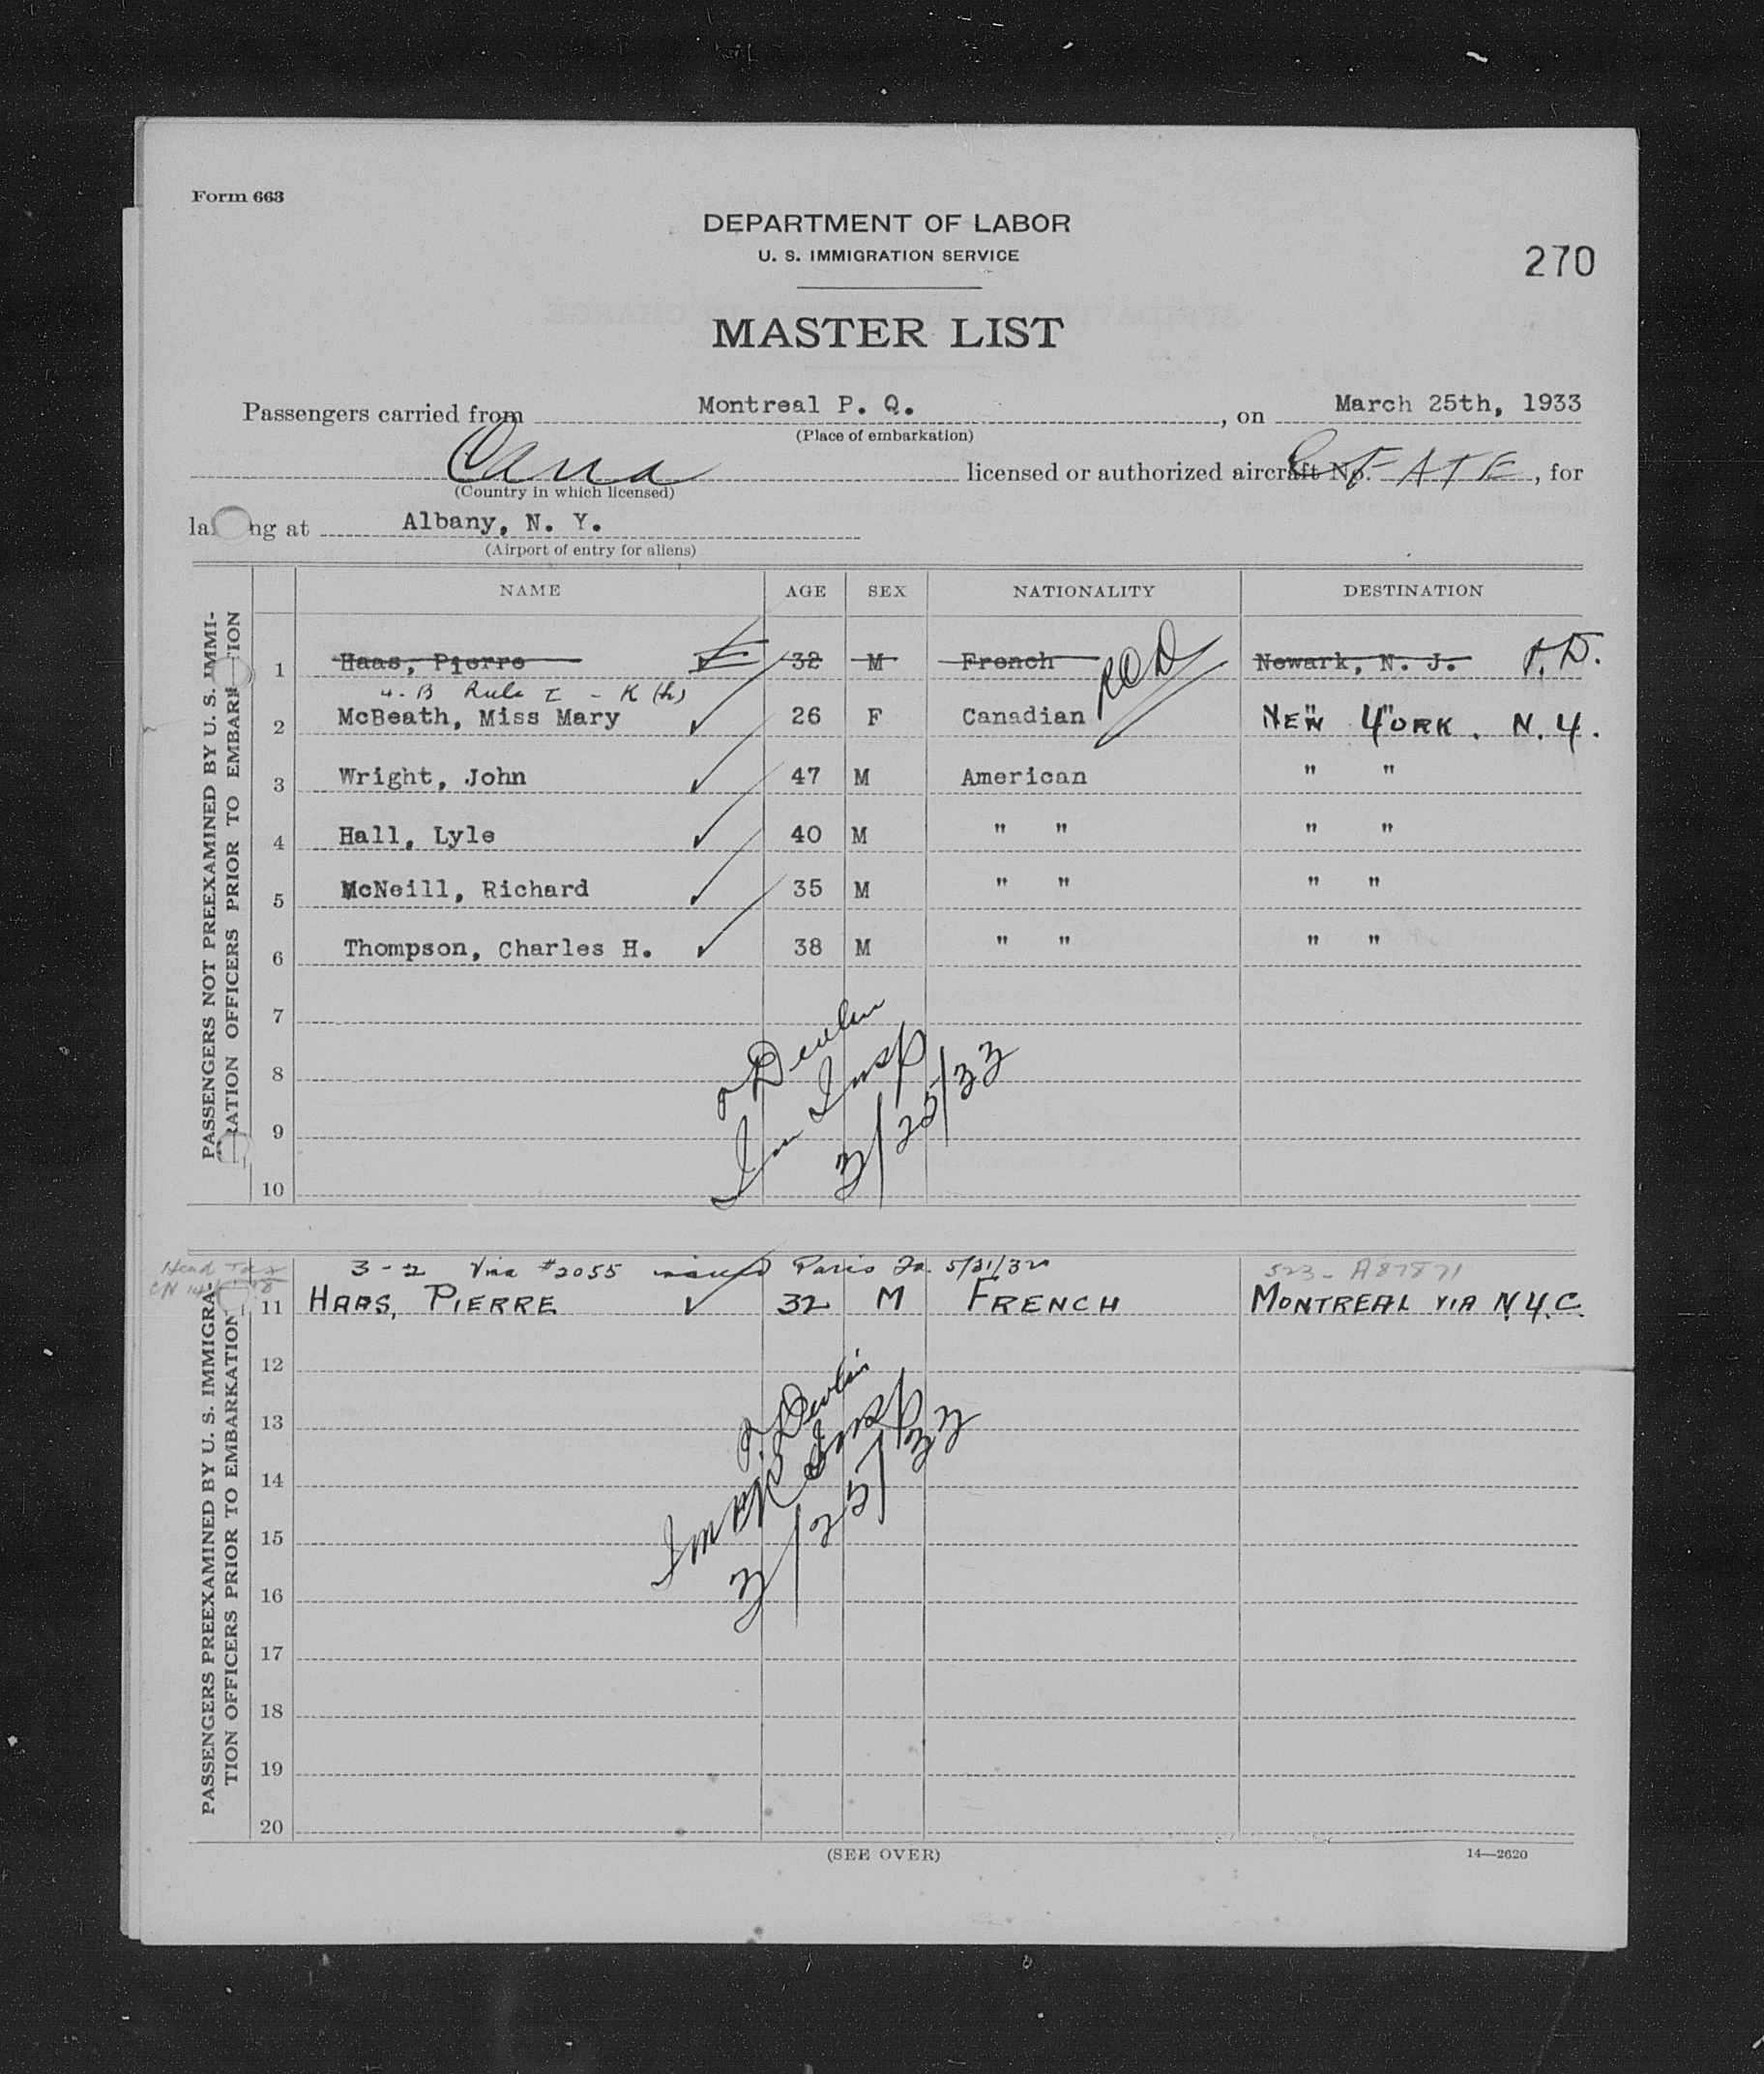 Form 663
DEPARTMENT OF LABOR
U. S. IMMIGRATION SERVICE
270
MASTER LIST
Passengers carried from Montreal P. Q., on March 25th, 1933
(Place of embarkation)
Cana licensed or authorized aircraft No. , for
(Country in which licensed)
la ng at Albany, N. Y.
(Airport of entry for aliens)
NAME AGE SEX NATIONALITY DESTINATION
PASSENGERS NOT PREEXAMINED BY U. S. IMMI-
RATION OFFICERS PRIOR TO EMBARK TION
1 Haas, Pierre 32 M French Newark, N. J.
4-B Rule I - K (h)
2 McBeath, Miss Mary 26 F Canadian NEW YORK. N.Y.
3 Wright, John 47 M American " "
4 Hall, Lyle 40 M " " " "
5 McNeill, Richard 35 M " " " "
6 Thompson, Charles H. 38 M " " " "
7
8
9
10
Devlin
Imm Insp
3/25/33
PASSENGERS PREEXAMINED BY U. S. IMMIGRA-
TION OFFICERS PRIOR TO EMBARKATION
Head Tax
3-2 Visa #2055 issued Paris Fr. 5/31/32 523-A87871
11 HAAS, PIERRE 32 M FRENCH MONTREAL VIA N.Y.C.
12
13
14
15
16
17
18
19
20
Devlin
Insp
3/25/33
(SEE OVER)
14—2620